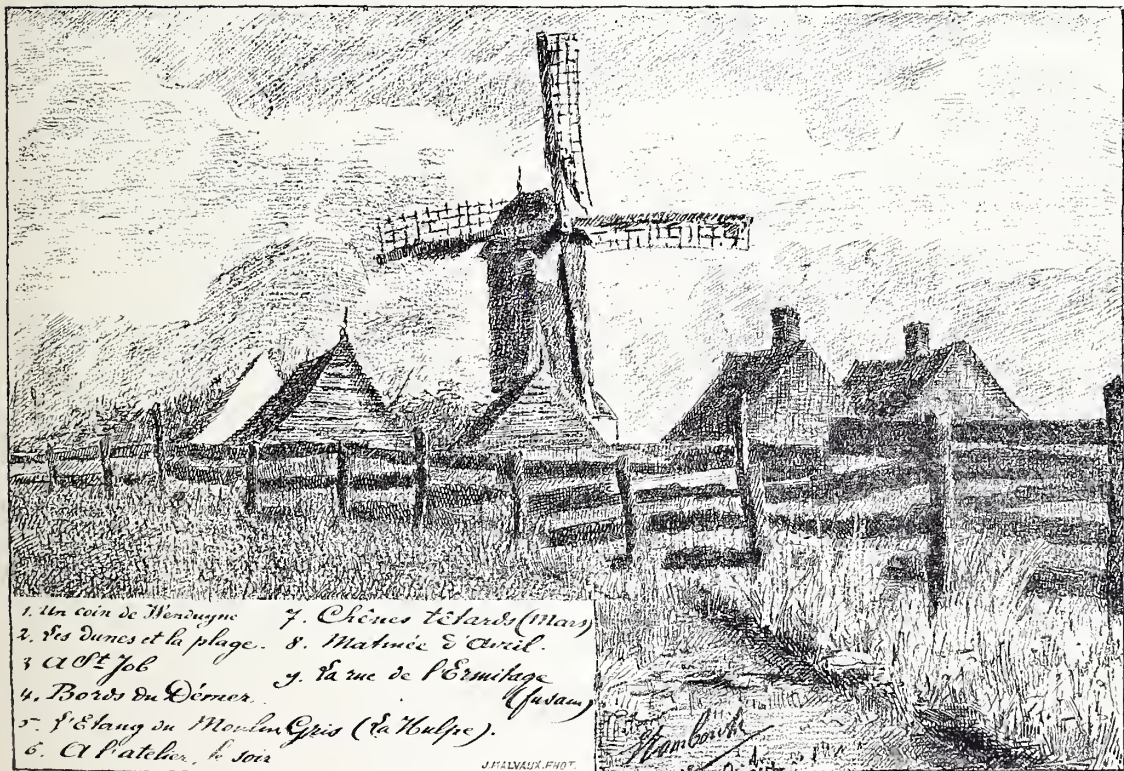 1. Un coin de Wenduyne
2. Les dunes et la plage.
3 A St Job
4. Bords du Démer.
5. l'Etang du Moulin Gris (La Hulpe).
6. A l'atelier, le soir
7. Chênes têtards (Mars)
8. Matinée d'Avril.
9. La rue de l'Ermitage
(fusain)
J. MALVAUX. PHOT.